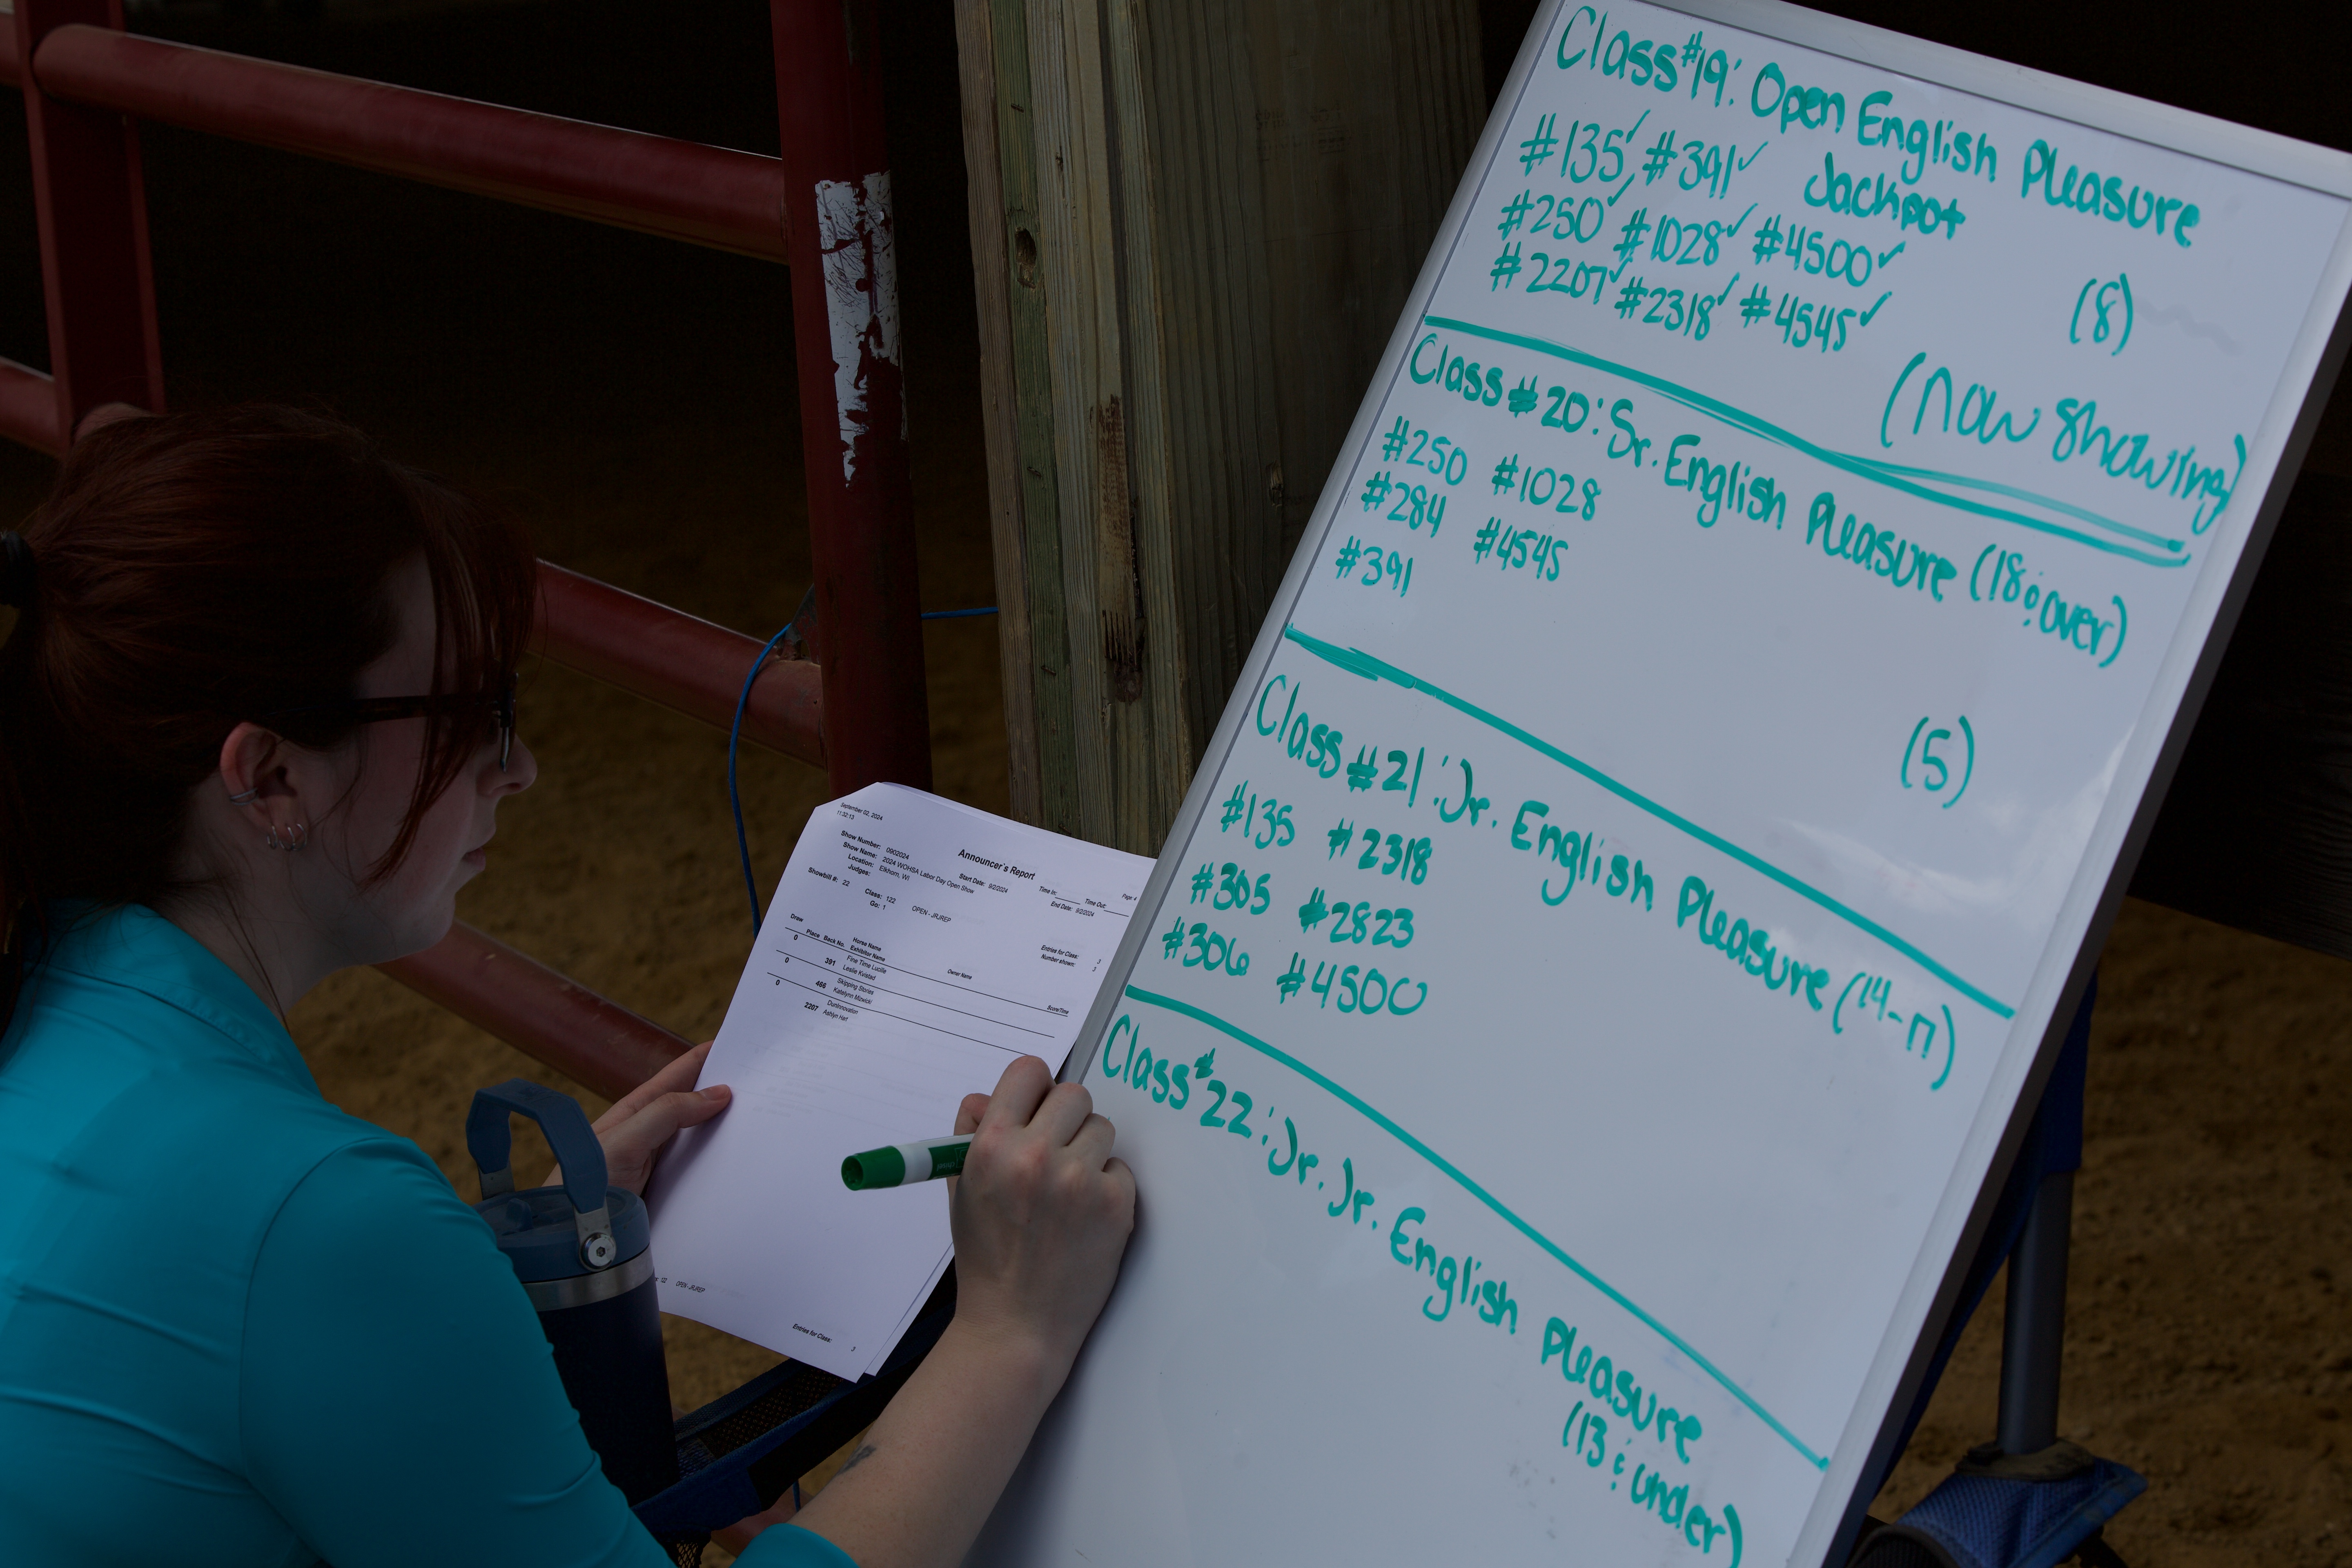 Class #19: Open English Pleasure
Jackpot
#135✓ #391✓
#250✓ #1028✓ #4500✓
#2207✓ #2318✓ #4545✓
(8)
(now showing)
Class #20: Sr. English Pleasure (18 & over)
#250 #1028
#284 #4545
#391
(5)
Class #21: Jr. English Pleasure (14-17)
#135 #2318
#305 #2823
#306 #4500
Class #22: Jr. Jr. English Pleasure
(13 & under)
September 02, 2024
11:32:13
Announcer's Report
Page 4
Show Number: 0902024
Show Name: 2024 WOHSA Labor Day Open Show
Location: Elkhorn, WI
Judges:
Start Date: 9/2/2024
End Date: 9/2/2024
Time In: Time Out:
Showbill #: 22 Class: 122 OPEN - JRJREP
Go: 1
Entries for Class: 3
Number shown: 3
Draw Place Back No. Horse Name
Exhibitor Name Owner Name Score/Time
0 391 Fine Time Lucille
Leslie Kvistad
0 466 Skipping Stories
Katelynn
0 2207 Dunhnovation
Ashlyn Hart
OPEN - JRJREP
Entries for Class: 3